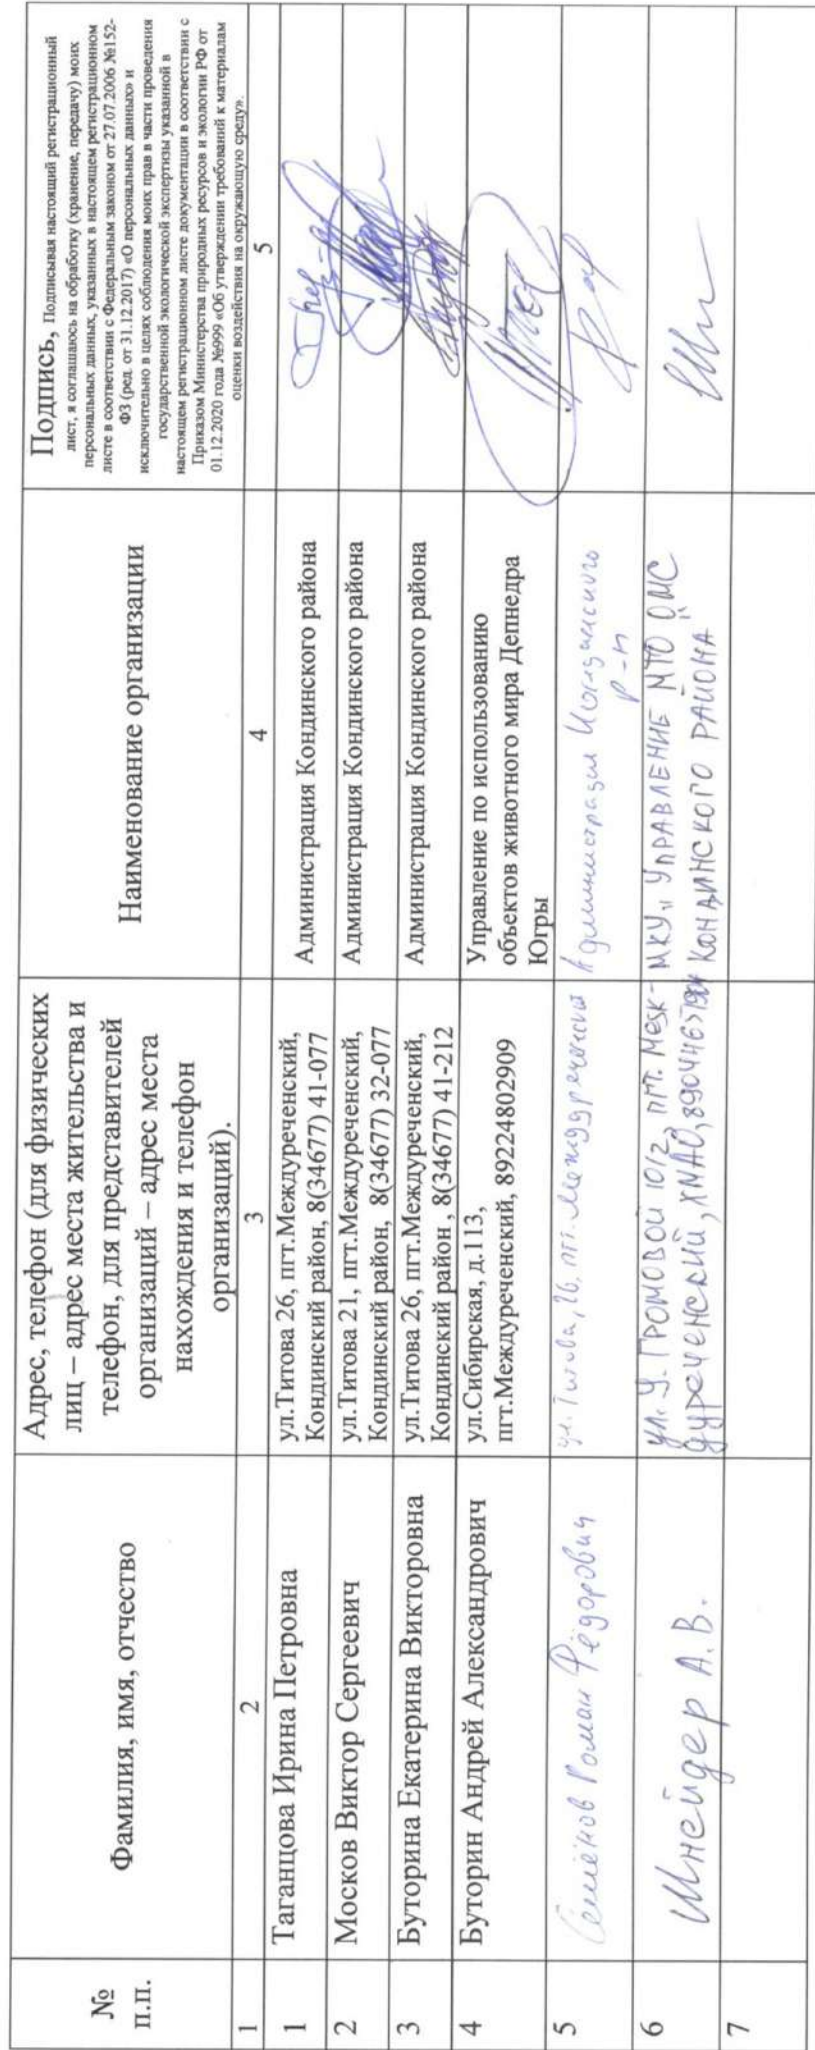 №
п.п.
Фамилия, имя, отчество
Адрес, телефон (для физических
лиц – адрес места жительства и
телефон, для представителей
организаций – адрес места
нахождения и телефон
организаций).
Наименование организации
Подпись, Подписывая настоящий регистрационный
лист, я соглашаюсь на обработку (хранение, передачу) моих
персональных данных, указанных в настоящем регистрационном
листе в соответствии с Федеральным законом от 27.07.2006 №152-
ФЗ (ред. от 31.12.2017) «О персональных данных» и
исключительно в целях соблюдения моих прав в части проведения
государственной экологической экспертизы указанной в
настоящем регистрационном листе документации в соответствии с
Приказом Министерства природных ресурсов и экологии РФ от
01.12.2020 года №999 «Об утверждении требований к материалам
оценки воздействия на окружающую среду».
1
2
3
4
5
1
Таганцова Ирина Петровна
ул.Титова 26, пгт.Междуреченский,
Кондинский район, 8(34677) 41-077
Администрация Кондинского района
2
Москов Виктор Сергеевич
ул.Титова 21, пгт.Междуреченский,
Кондинский район, 8(34677) 32-077
Администрация Кондинского района
3
Буторина Екатерина Викторовна
ул.Титова 26, пгт.Междуреченский,
Кондинский район , 8(34677) 41-212
Администрация Кондинского района
4
Буторин Андрей Александрович
ул.Сибирская, д.113,
пгт.Междуреченский, 89224802909
Управление по использованию
объектов животного мира Депнедра
Югры
5
Семёнов Роман Фёдорович
ул. Титова, 26, пгт. Междуреченский
Администрация Кондинского
р-н
6
Шнейдер А.В.
ул. У. ГРОМОВОЙ 10/2, пгт. Меж-
дуреченский, ХМАО,
МКУ "УПРАВЛЕНИЕ МТО ОМС
КОНДИНСКОГО РАЙОНА
7